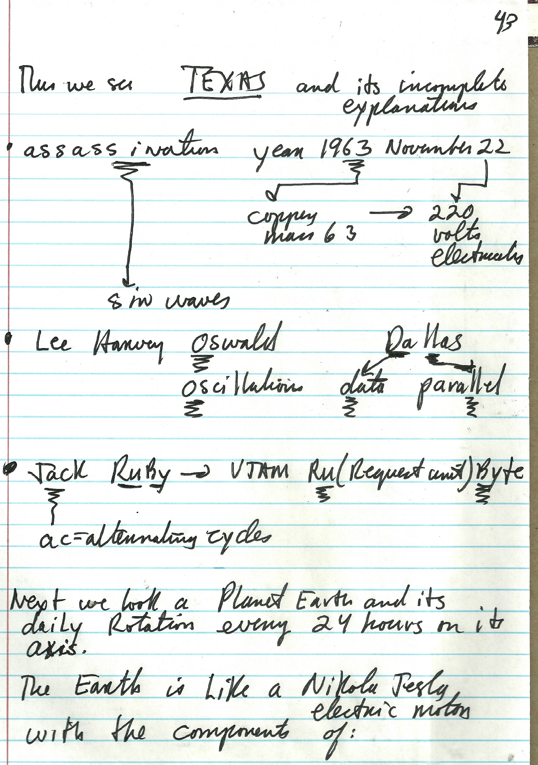 43
Thus we see TEXAS and its incomplete
explanations
• assassination year 1963 November 22
copper → 220
mass 63 volts
electricity
sin waves
• Lee Harvey Oswald Dallas
oscillations data parallel
• Jack RuBy → VTAM Ru (Request unit) Byte
ac=alternating cycles
Next we look a Planet Earth and its
daily Rotation every 24 hours on it
axis.
The Earth is Like a Nikola Tesla
electric motor
with the components of: